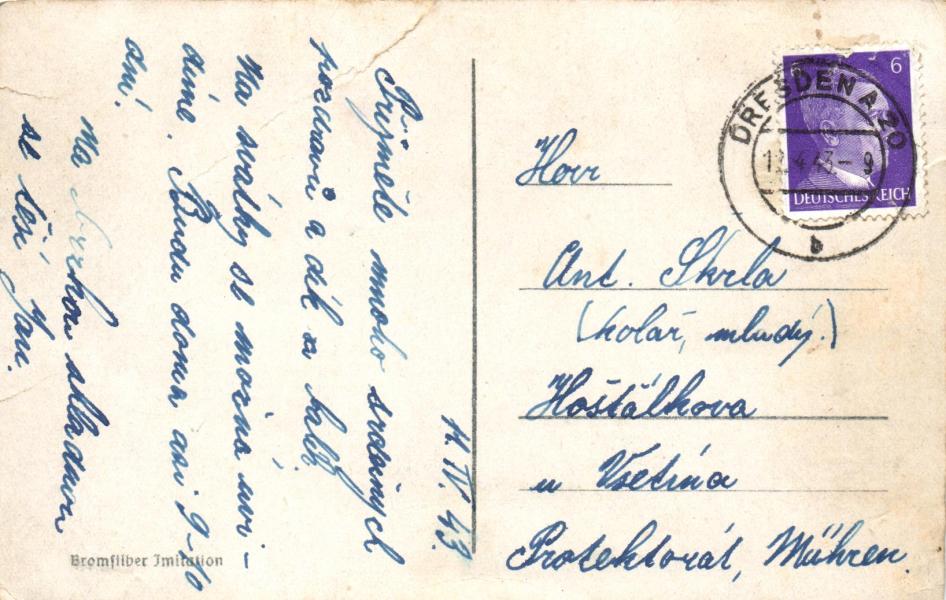 11. IV. 43.
Přijměte mnoho srdečných
pozdravů a dík za balík
Na svátky se možná uvi-
díme. Budu doma asi 9-10
dní.
Na brzkou shledanou
se těší Jan.
Bromsilber Imitation
6
DEUTSCHES REICH
DRESDEN A 20
4.43-9
b
Herr
Ant. Skrla
(kolář, mladý.)
Hošťálkova
u Vsetína
Protektorát, Mähren.